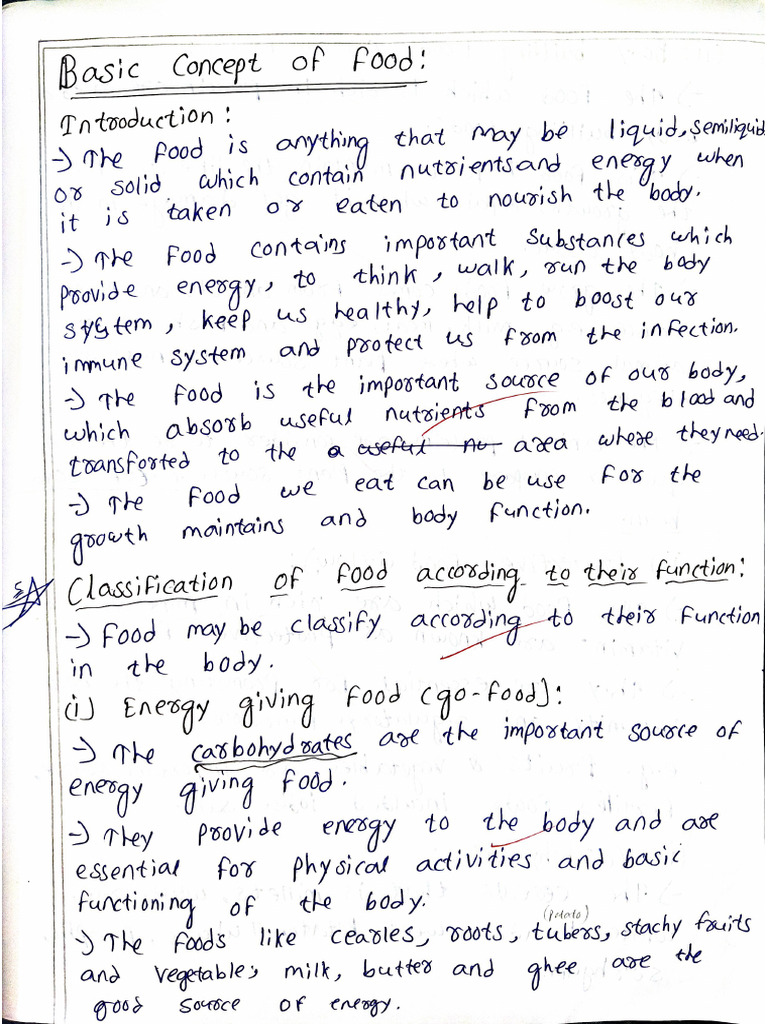 Basic Concept of Food:
Introduction:
→ The Food is anything that may be liquid, semiliquid
or solid which contain nutrients and energy when
it is taken or eaten to nourish the body.
→ The Food contains important substances which
provide energy, to think, walk, run the body
system, keep us healthy, help to boost our
immune system and protect us from the infection.
→ The Food is the important source of our body,
which absorb useful nutrients from the blood and
transforted to the a useful nu area where they need.
→ The Food we eat can be use for the
growth maintains and body function.
Classification of Food according to their function:
→ Food may be classify according to their function
in the body.
(i) Energy giving Food (go-food):
→ The carbohydrates are the important source of
energy giving food.
→ They provide energy to the body and are
essential for physical activities and basic
functioning of the body.
(potato)
→ The foods like cearles, roots, tubers, stachy fruits
and vegetable, milk, butter and ghee are the
good source of energy.